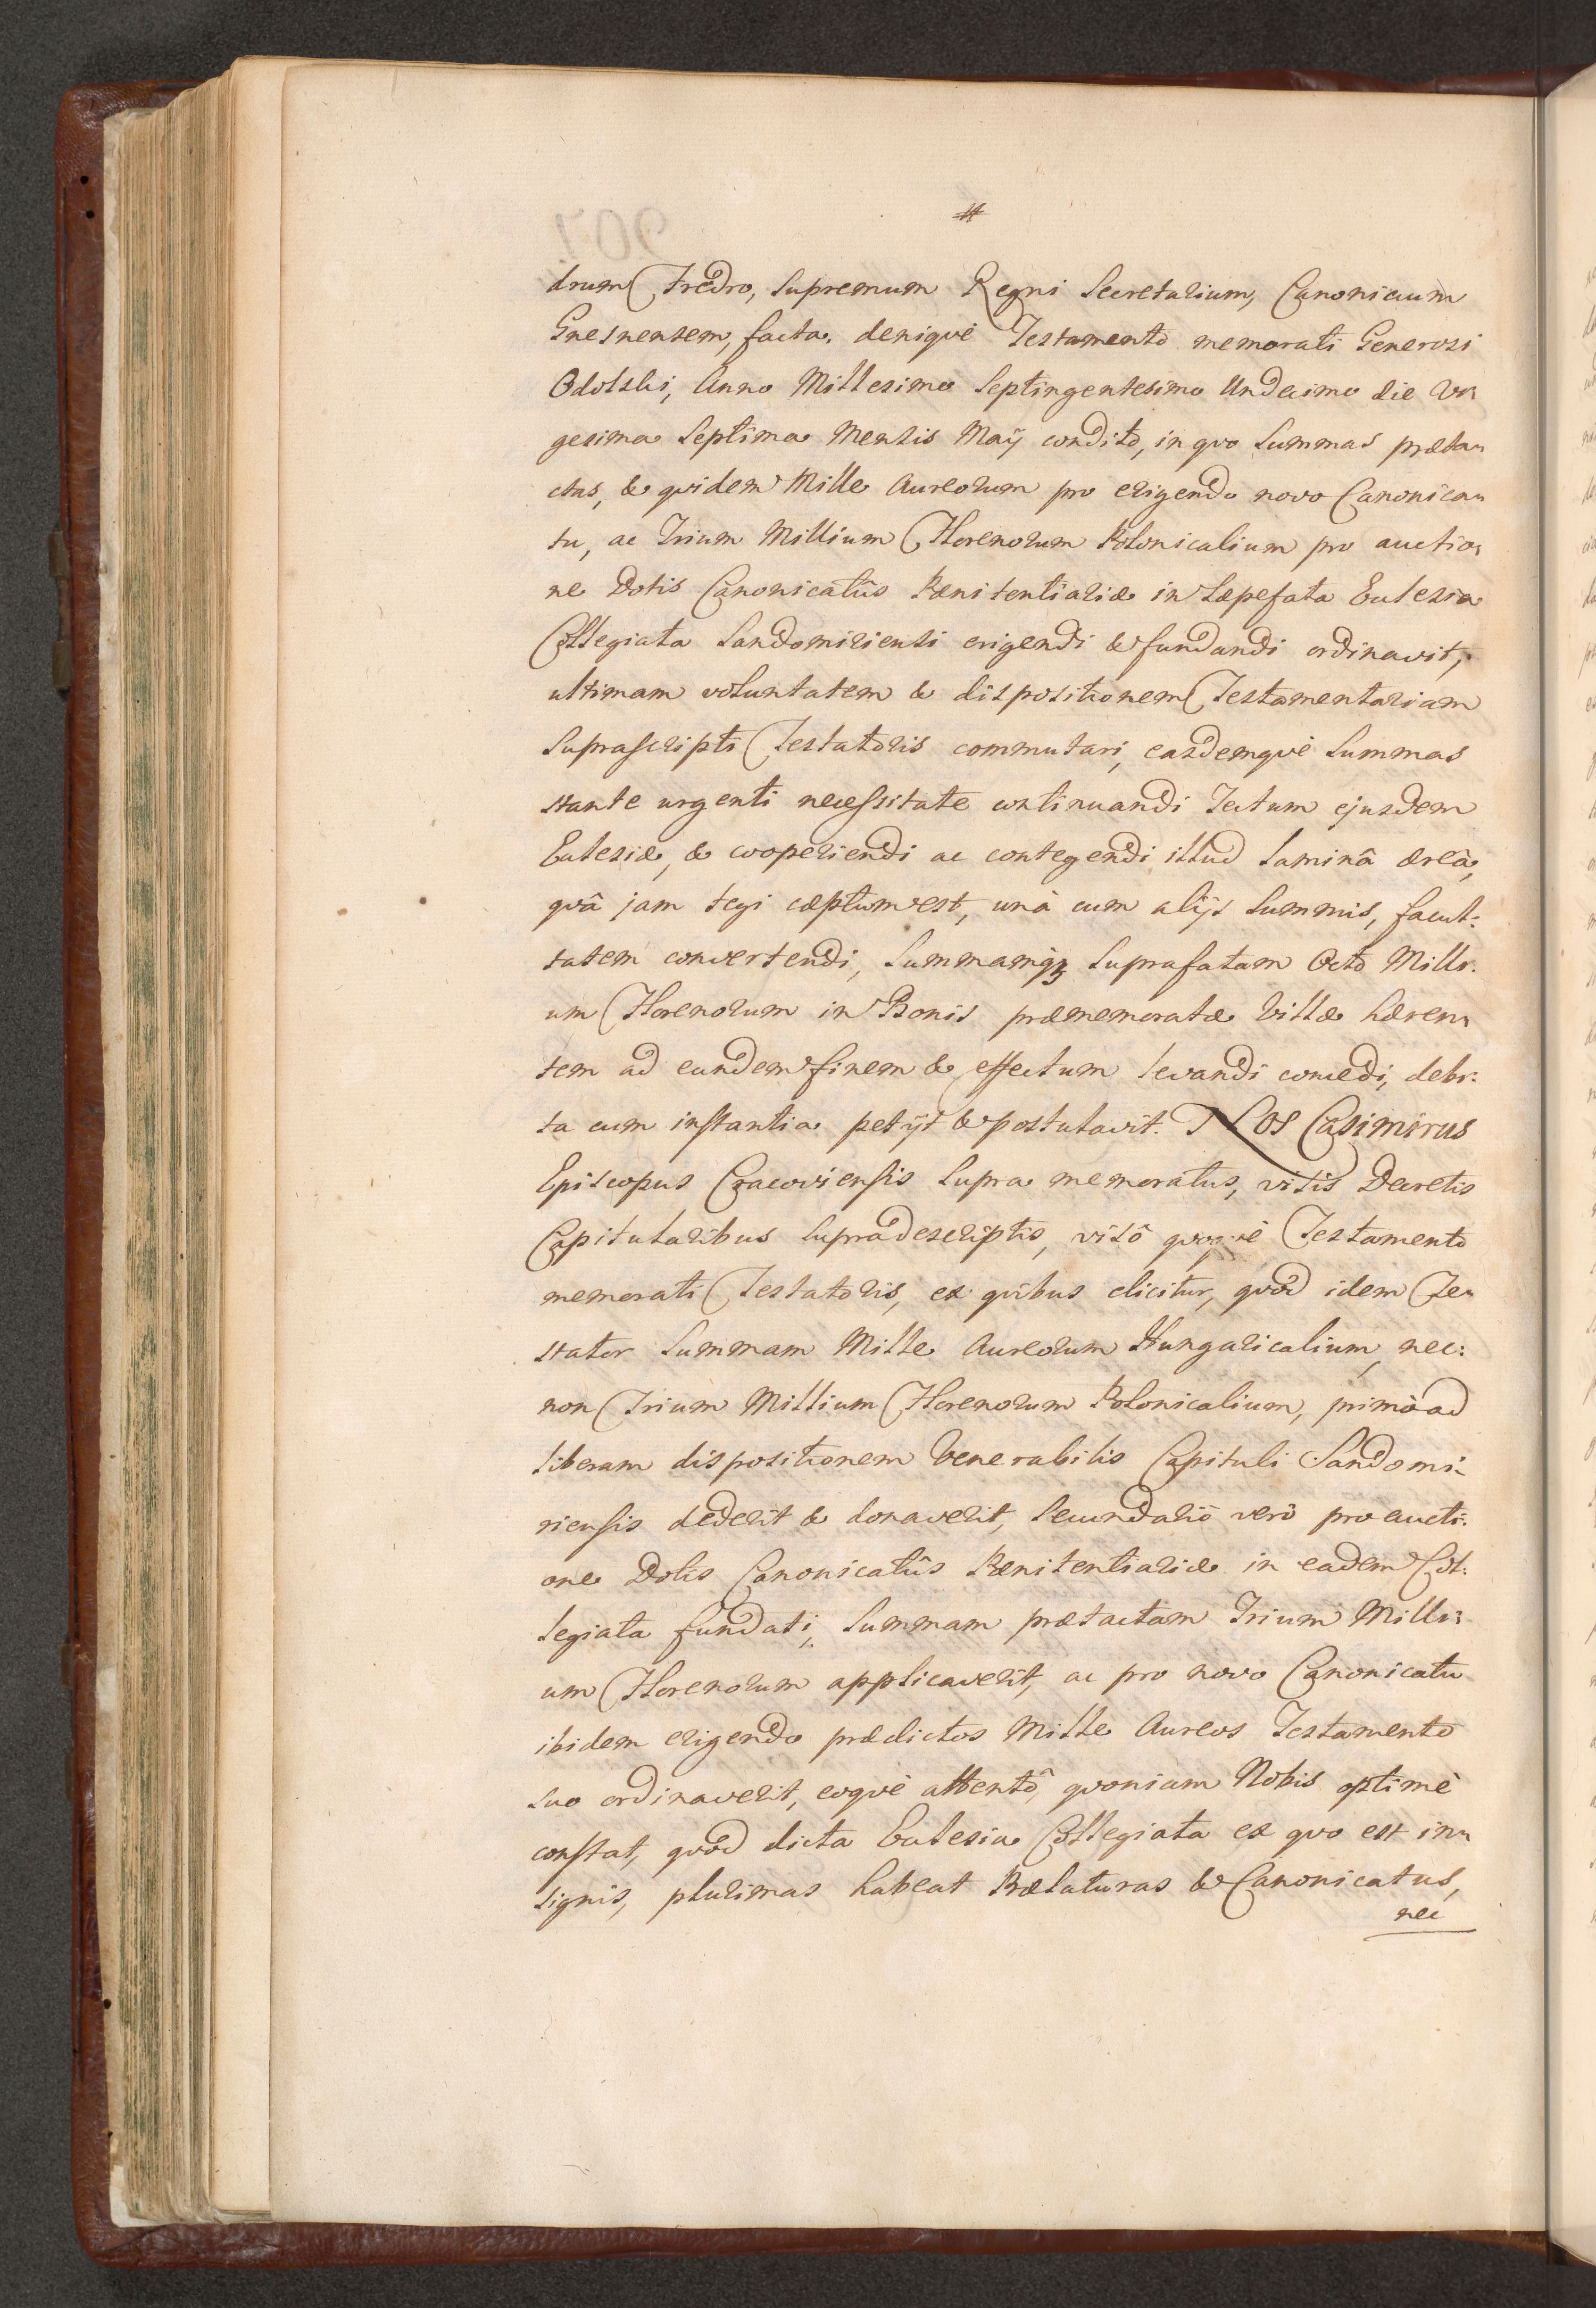 drum Fredro, Supremum Regni Secretarium, Canonicum
Gnesnensem, facta, deniquè Testamento memorati Generosi
Odolski, Anno Millesimo Septingentesimo Undecimo die Vi„
gesima Septima Mensis Maÿ condito, in quo Summas præta„
ctas, & quidem Mille Aureorum pro erigendo novo Canonica„
tu, ac Trium Millium Florenorum Polonicalium pro auctio„
ne Dotis Canonicatûs Pænitentiariæ in Sæpefata Eclesia
Collegiata Sandomiriensi erigendi & fundandi ordinavit,
ultimam voluntatem & dispositionem Testamentariam
Suprascripti Testatoris commutari, easdemquè Summas
stante urgenti necessitate continuandi Tectum ejusdem
Eclesiæ, & cooperiendi ac contegendi illud Laminâ æreâ,
quâ jam tegi cæptum est, unà cum alÿs Summis, facul:
tatem convertendi, Summamq3 Suprafatam Octo Milli:
um Florenorum in Bonis præmemoratæ Villæ hæren„
tem ad eundem finem & effectum levandi concedi, debi:
ta cum instantia petÿt & postulavit. NOS Casimirus
Episcopus Cracoviensis Supra memoratus, visis Decretis
Capitularibus Supradescriptis, visô quoquè Testamento
memorati Testatoris, ex quibus elicitur, quòd idem Te„
stator Summam Mille Aureorum Hungaricalium, nec:
non Trium Millium Florenorum Polonicalium, primò ad
liberam dispositionem Venerabilis Capituli Sandomi:
riensis dederit & donaverit, Secundariò verò pro aucti:
one Dotis Canonicatûs Pænitentiariæ in eadem Col:
legiata fundati, Summam prætactam Trium Milli:
um Florenorum applicaverit, ac pro novo Canonicatu
ibidem erigendo prædictos Mille Aureos Testamento
suo ordinaverit, eoquè attentô, quoniam Nobis optimè
constat, quòd dicta Eclesia Collegiata ex quo est in„
signis, plurimas habeat Prælaturas & Canonicatus,
nec